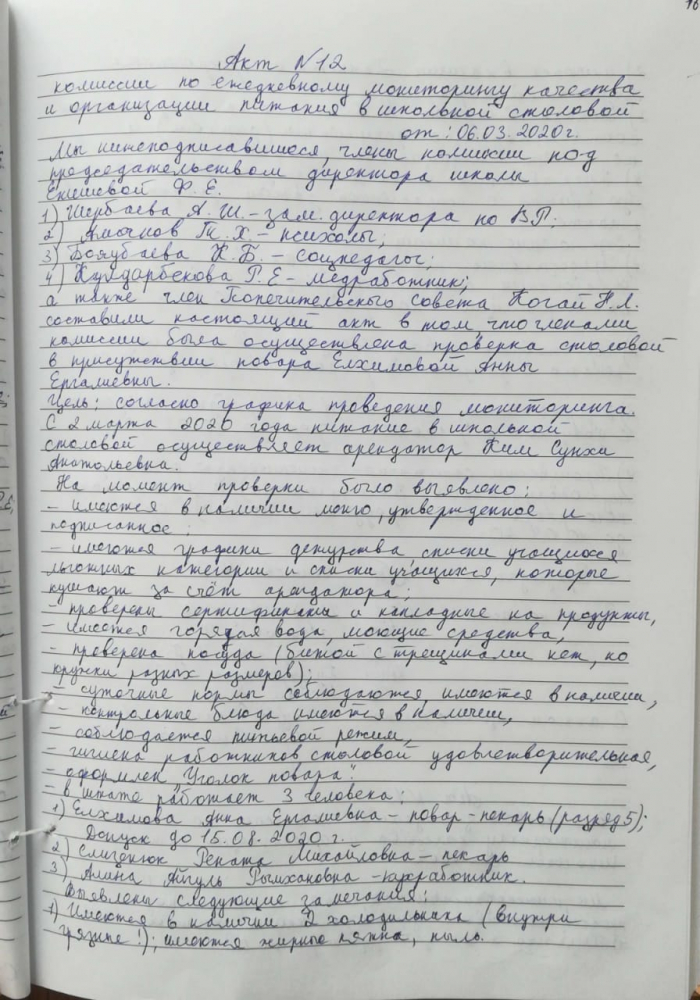 Акт №12
комиссии по ежедневному мониторингу качества
и организации питания в школьной столовой
от: 06.03.2020г.
Мы нижеподписавшиеся, члены комиссии под
председательством директора школы
Ф. Е.
1) Шербаева А. Ш. - зам. директора по ВР.
2) Т. Х - психолог;
3) К. Б. - соцпедагог;
4) Кулдарбекова Г. Е - медработник;
а также член Попечительского совета Когай Н. Л.
составили настоящий акт в том, что членами
комиссии была осуществлена проверка столовой
в присутствии повара Елхимовой Анны
Ергалиевны.
Цель: согласно графика проведения мониторинга.
С 2 марта 2020 года питание в школьной
столовой осуществляет арендатор Ким Сунхи
Анатольевна.
На момент проверки было выявлено:
- имеются в наличии меню, утвержденное и
подписанное;
- имеются графики дежурства, списки учащихся
льготных категории и списки учащихся, которые
кушают за счёт арендатора;
- проверены сертификаты и накладные на продукты,
- имеется горячая вода, моющие средства,
- проверена посуда (битой с трещинами нет, но
кружки разных размеров);
- суточные нормы соблюдаются, имеются в наличии,
- контрольные блюда имеются в наличии,
- соблюдается питьевой режим,
- гигиена работников столовой удовлетворительная,
- оформлен "Уголок повара".
- в штате работает 3 человека:
1) Елхимова Анна Ергалиевна - повар-пекарь (разряд 5);
Допуск до 15.08.2020 г.
2) Рената Михайловна - пекарь
3) Алина Айгуль Рымхановна - кухработник.
Выявлены следующие замечания:
1) Имеются в наличии 2 холодильника (внутри
грязные!); имеются жирные пятна, пыль.